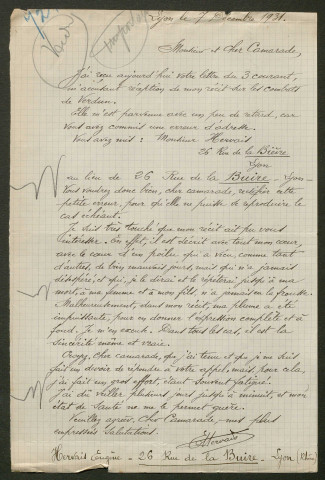 92
Lyon le 7 Décembre 1931.
Monsieur et Cher Camarade,
J'ai reçu aujourd'hui votre lettre du 3 courant,
m'accusant réception de mon récit sur les combats
de Verdun.
Elle m'est parvenue avec un peu de retard, car
vous avez commis une erreur d'adresse.
Vous avez mis : Monsieur Hervais
26 Rue de la Brière
Lyon
au lieu de 26 Rue de la Buire - Lyon -
Vous voudrez donc bien, cher camarade, rectifier cette
petite erreur, pour qu'elle ne puisse se reproduire le
cas échéant.
Je suis très touché que mon récit ait pu vous
intéresser. En effet, il est décrit avec tout mon cœur,
avec le cœur d'un poilu qui a vécu, comme tant
d'autres, de bien mauvais jours, mais qui n'a jamais
désespéré, et qui, je le dirai et le répéterai jusqu'à ma
mort, à ma femme et à mon fils, n'a jamais eu la frousse.
Malheureusement, dans mon récit, ma plume a été
impuissante, pour en donner l'expression complète et à
fond. Je m'en excuse. Dans tous les cas, il est la
sincérité même et vraie.
Croyez, cher camarade, que j'ai tenu et que je me suis
fait un devoir de répondre à votre appel, mais, pour cela,
j'ai fait un gros effort, étant souvent fatigué.
J'ai dû veiller plusieurs jours jusqu'à minuit, et mon
état de santé ne me le permet guère.
Veuillez agréer, Cher Camarade, mes plus
empressées Salutations.
Hervais
Hervais - 26 Rue de la Buire - Lyon (Rhône)